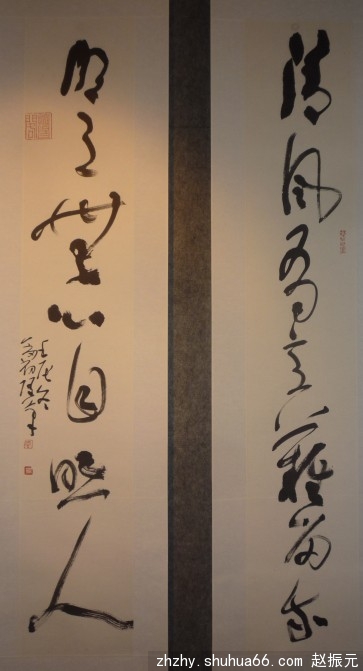 清风有意難留我
明月無心自照人
zhzhy.shuhua66.com 赵振元